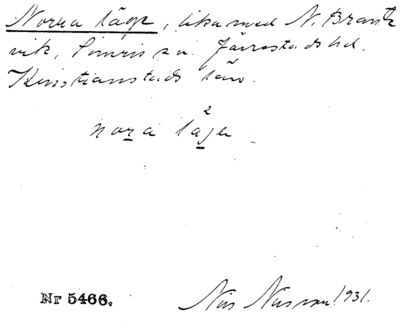 Norra läge, lika med N. Brante
vik, Simris sn. Järrestads hd.
Kristianstads län.
nora läge
2
Nr 5466.
Nils 1931.